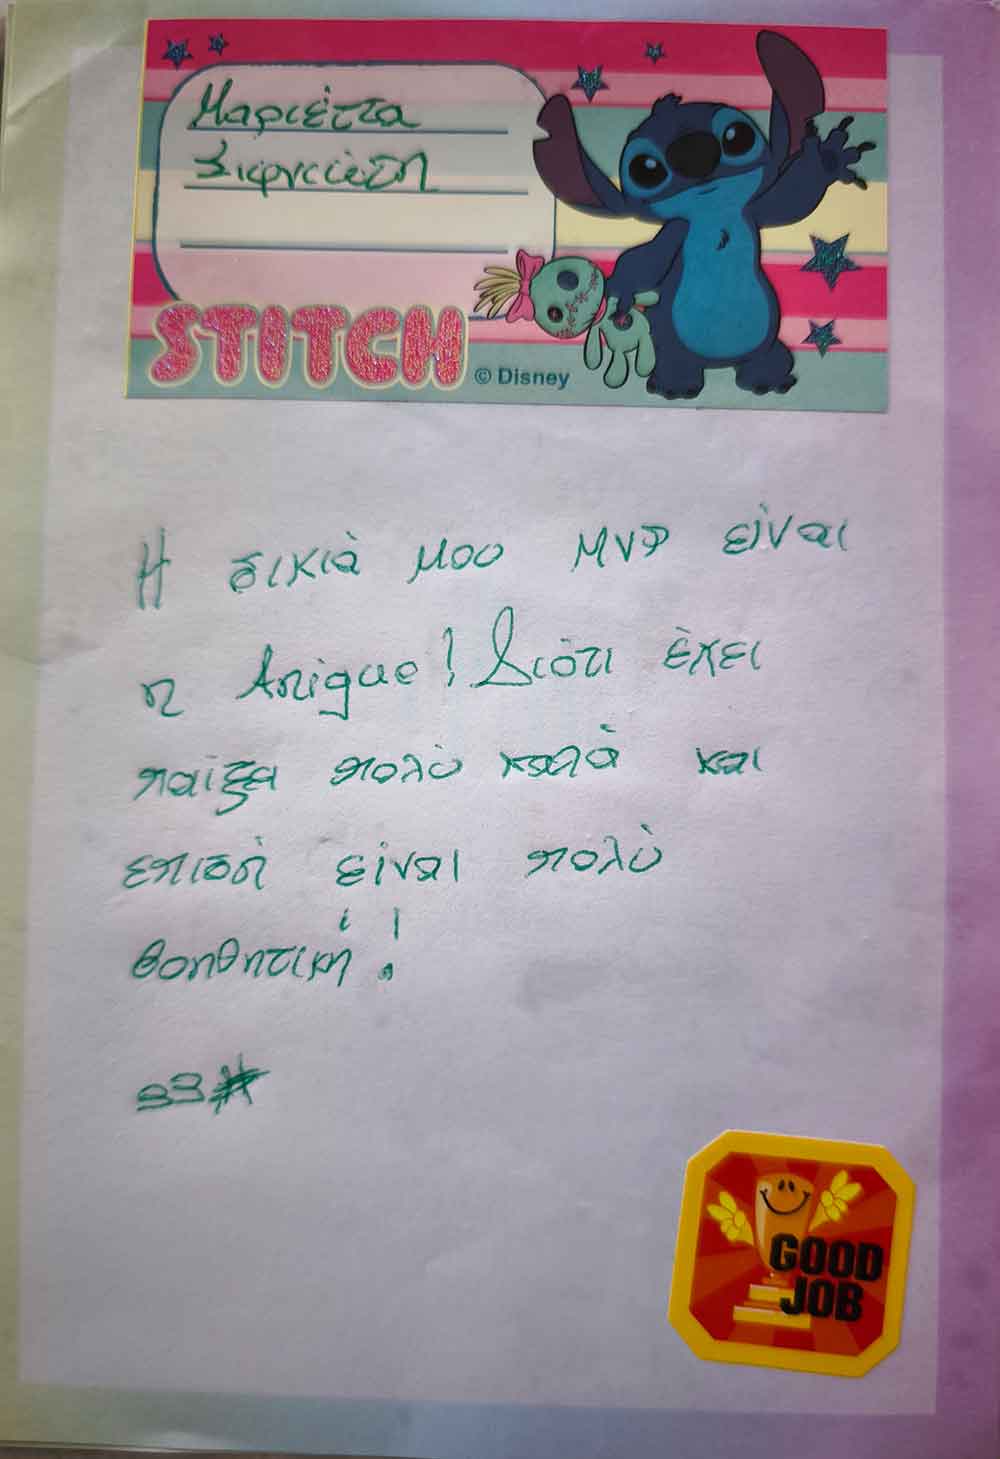 Μαριέττα
STITCH
© Disney
Η δικιά μου MVP είναι
η Anigue! Διότι έχει
παίξει πολύ καλά και
επιδή είναι πολύ
βοηθητική!
GOOD
JOB